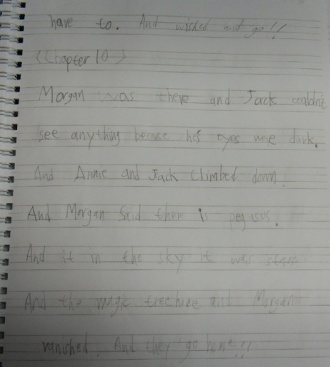 have to. And would not go!!
<Chapter 10>
Morgan was there and Jack couldn't
see anything becase his eyes were dark.
And Annie and Jack climbed down.
And Morgan said there is pegasus.
And it in the sky it was stars
And the magic treehouse and Morgan
vanished. And they go home!!